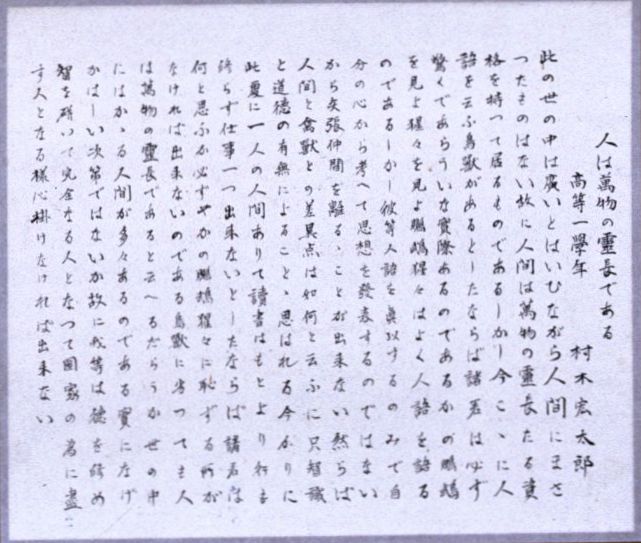 人は萬物の靈長である
高等一學年　村木宏太郎
此の世の中は廣いとはいひながら人間にまさ
つたものはない故に人間は萬物の靈長たる資
格を持つて居るものであるしかし今こゝに人
語を云ふ鳥獸があるとしたならば諸君は必ず
驚くであらういな實際あるのであるかの鸚鵡
を見よ猩々を見よ鸚鵡猩々はよく人語を語る
のであるしかし彼等人語を眞似するのみで自
分の心から考へて思想を發表するのではない
から矢張仲間を離るゝことが出来ない然らば
人間と禽獸との差異点は如何と云ふに只智識
と道德の有無によることゝ思はれる今かりに
此處に一人の人間ありて讀書はもとより行も
修らず仕事一つ出来ないとしたならば諸君は
何と思ふか必ずやかの鸚鵡猩々に恥ずる所が
なければ出来ないのである鳥獸に劣つても人
は萬物の靈長であると云へるだらうか世の中
にはかゝる人間が多々あるのである實になげ
かはしい次第ではないか故に我等は德を修め
智を研いで完全なる人となつて国家の為に盡
す人となる樣心掛けなければ出来ない